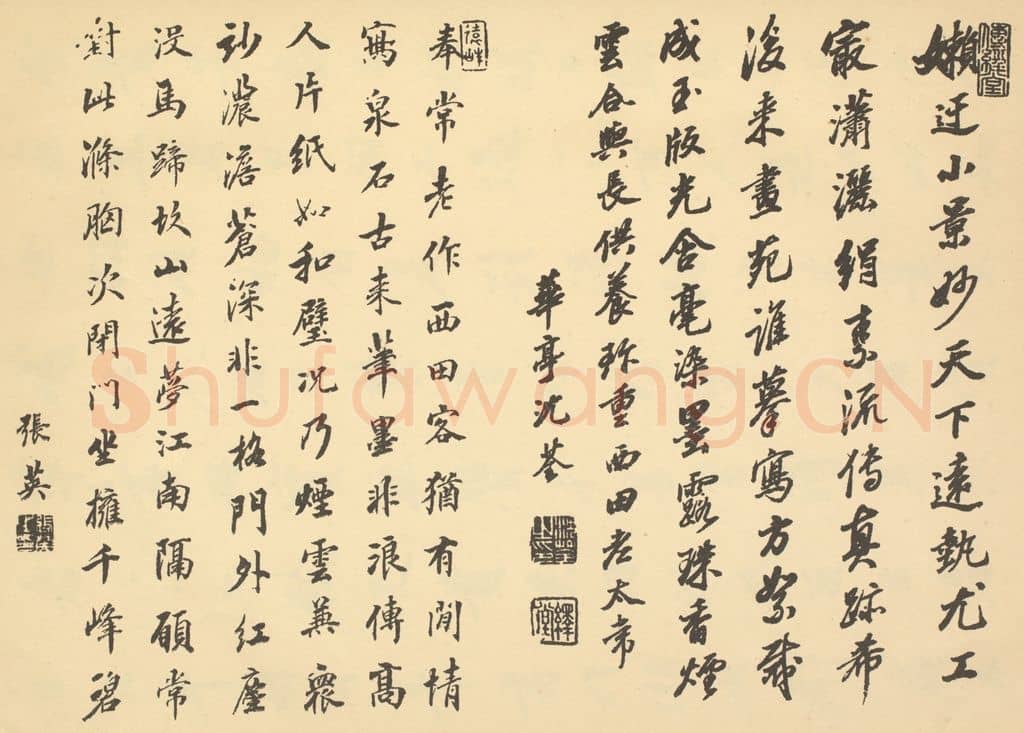 嬾迂小景妙天下遠執尤工
最瀟灑絹素流傳真跡希
後来畫苑誰摹寫方絮裁
成玉版光含毫染墨露珠香煙
雲合與長供養珍重西田老太常
華亭沈荃
奉常老作西田客猶有閒情
寫泉石古来筆墨非浪傳高
人片紙如和璧況乃煙雲兼衆
玅濃澹蒼深非一格門外紅塵
沒馬蹄故山遠夢江南隔願常
對此滌胸次閉門坐擁千峰碧
張英
Shufawang.CN